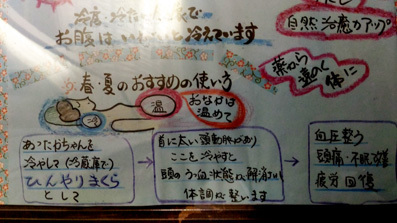 冷房、冷たい
お腹はいつもより冷えています
自然治癒力アップ
薬から
遠のく体に
春夏のおすすめの使い方
温
おなかは
温めて
冷
あったわちゃんを
冷やして（冷蔵庫で）
ひんやりまくら
として
首に太い頸動脈があり
ここを冷やすと
頭のうっ血状態が解消さい
体調が整います
血圧整う
頭痛・不眠改善
疲労回復